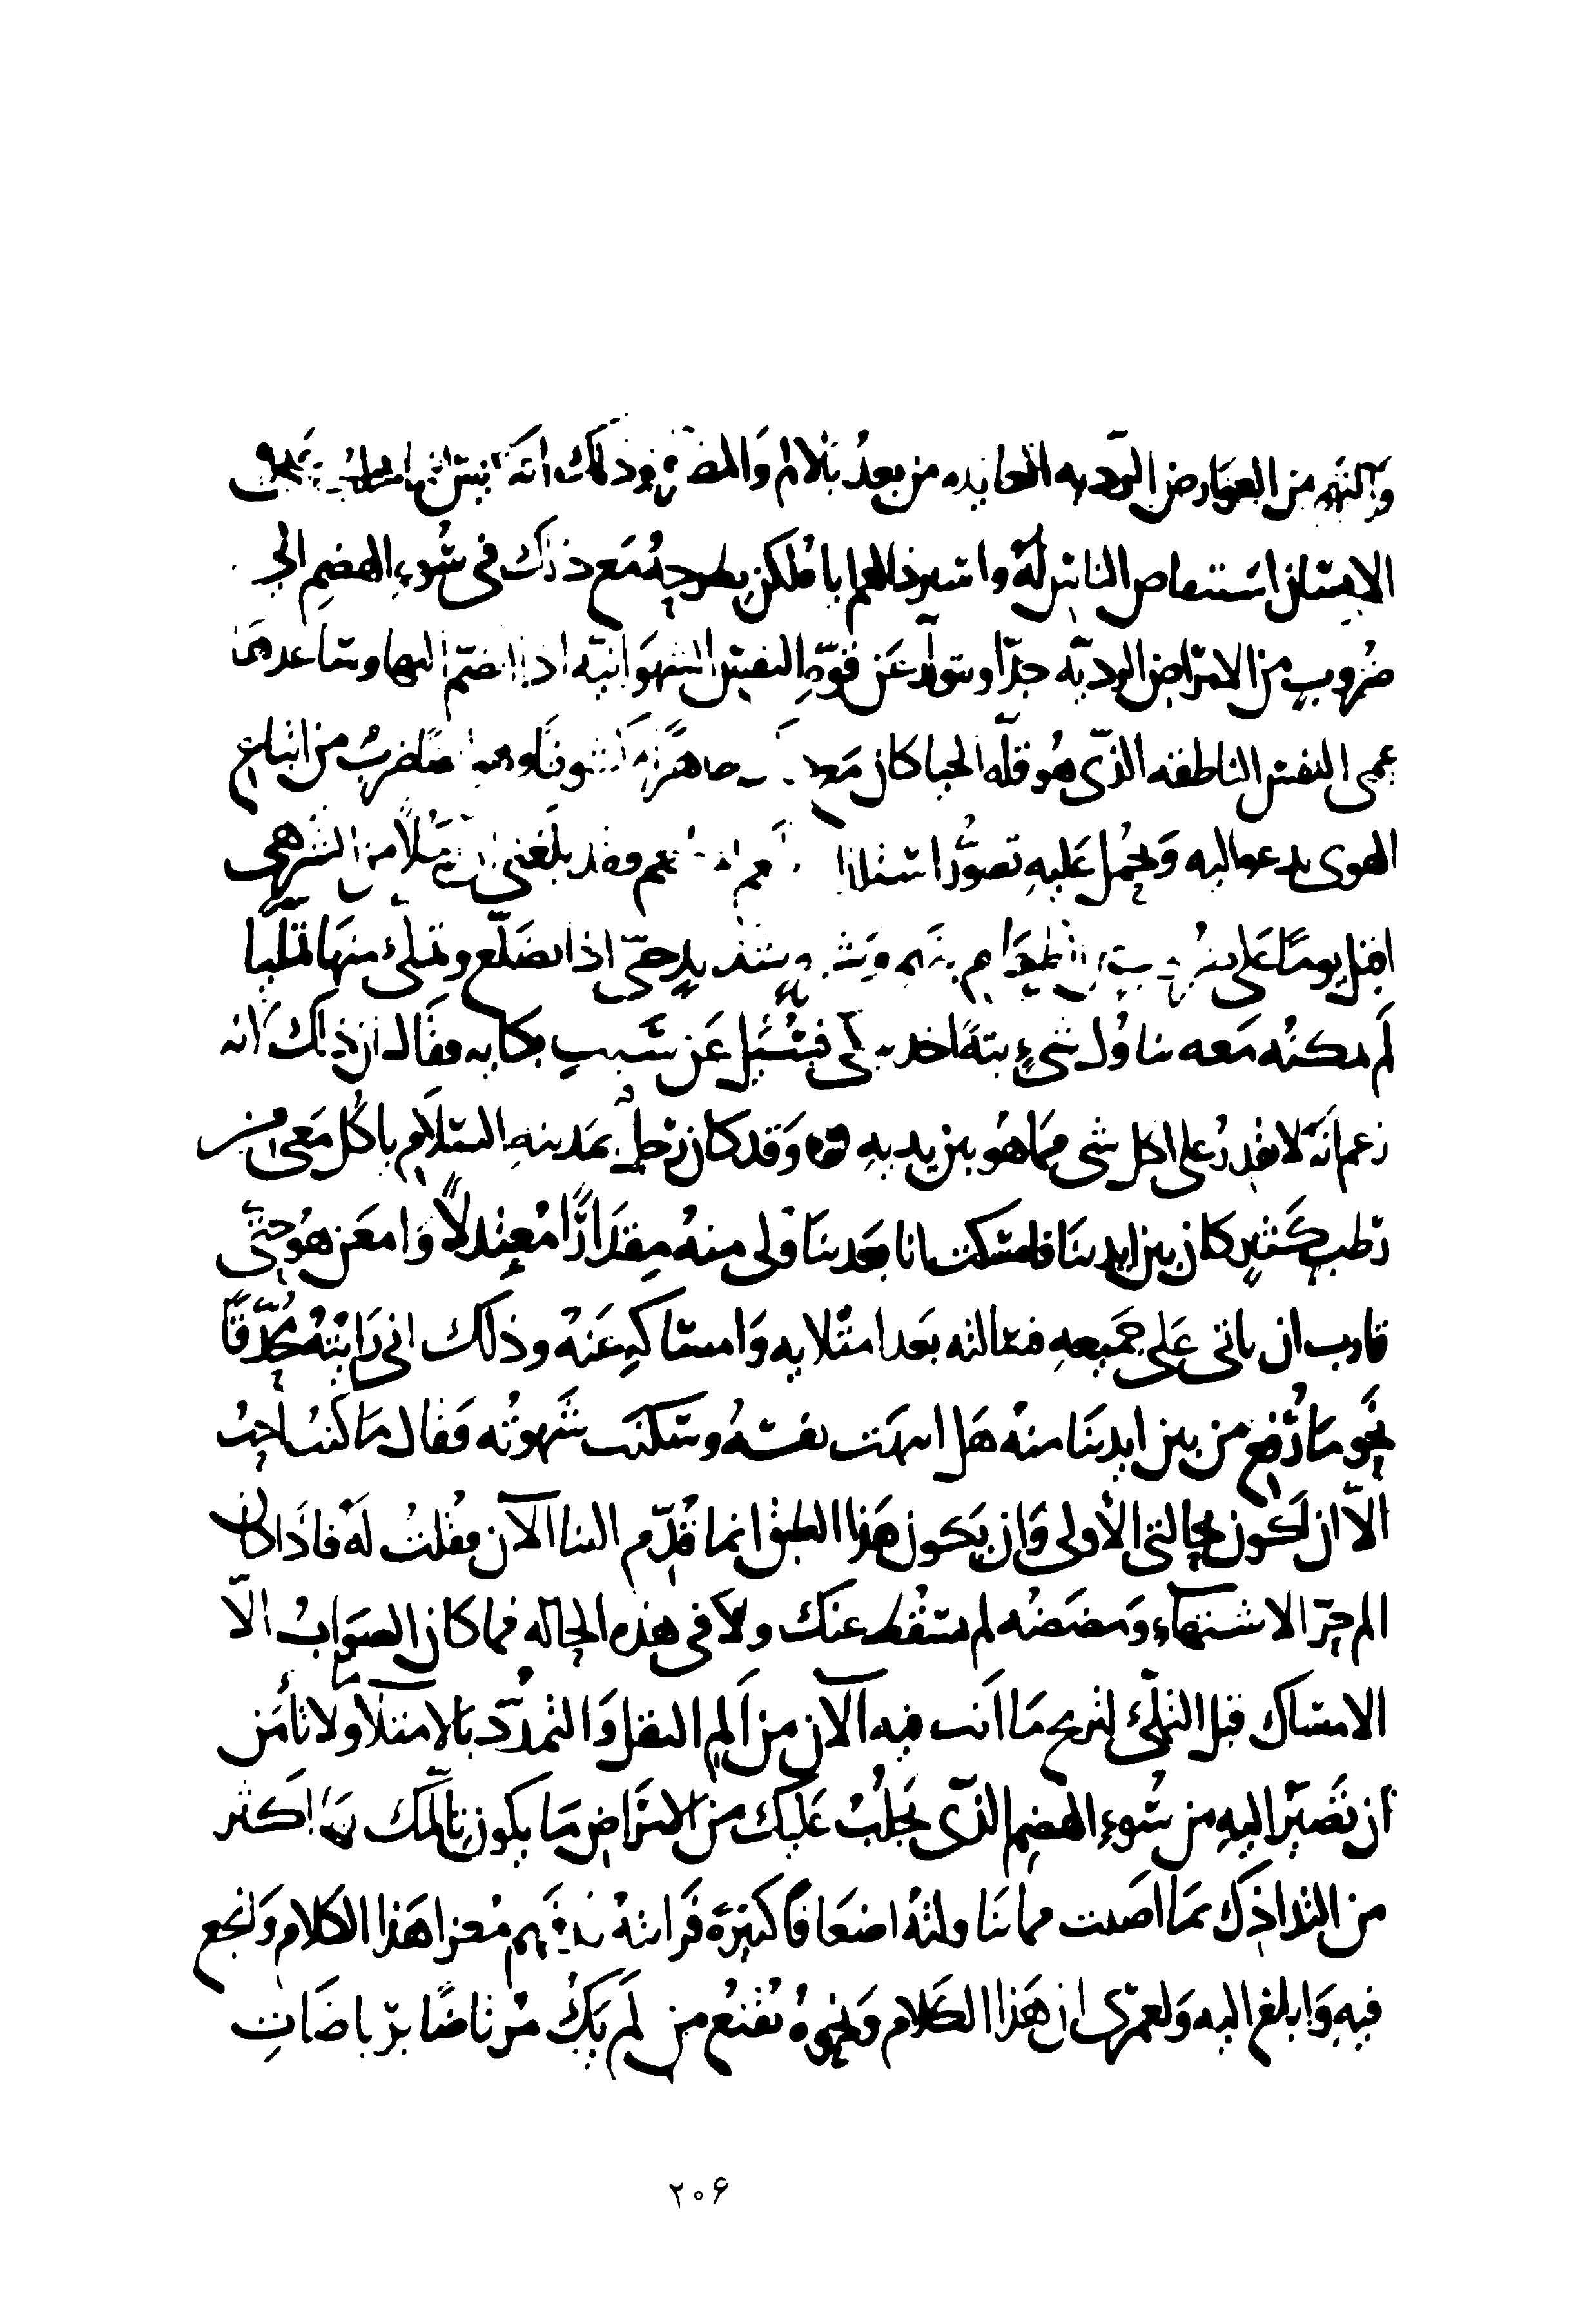 والشره من العوارض الرديه العايده من بعدُ بالالام وَالمضرّه وذلك انّه ليس انما يجلب على
الانسان استنقاص الناس لهُ واسترذالهم اياهُ لكن يطرحهُ مَع ذلك فى سُوءِ الهضمِ الى
ضُروبٍ من الامرَاض الرديّه جدّا ويتولّد عَن قوّهِ النفس الشهوَانيّه اذا انضمّ اليها وساعدهَا
عمى النفس الناطقه الذّى هُو قلّه الحيا كان مَع ضربٌ من اتباع
الهوى يدعوا اليه وَيحُمل عَليهِ تصوُّر استلذاذ طعم وقد بلغنى انّ رجُلاً من اهل الشرَه
اقبل يومًا عَلى ضُروبٍ من الطعَام بنهم وشرهٍ شديدٍ حتىّ اذا تضلّع وتملّئ منهَا تملّيا
لَم يمكنُه مَعه تناوُل شىءٍ بتةً اخذ يبكى فسُئل عَن سَببِ بكايه فقَال ان ذلكَ انه
زعم انَّه لا يقدرُ على اكل شى ممَا هُو بين يديهِ ه وَقد كان رَجلٌ بمَدينهِ السّلَام ياكُل مَعى من
رطبٍ كَثيرٍ كان بين ايدينَا فامسكت انا بعَد تناوُلى منهُ مِقدَارًا مُعتِدلاً وَامعَن هُو حتىّ
قارب ان ياتى عَلى جَميعهِ فسالته بعَد امتلايه وَامساكهِ عَنهُ وذلَك انى رَايتهُ مُحدّقًا
نحَو مَا رُفع من بين ايدينَا منهُ هَل انتهَت نفسهُ وسَكنَت شَهوتُه فَقال مَا كُنتُ احِبُ
الاّ ان اكُون بحِالتى الأولى وَان يَكون هَذا الطبق انما قُدِّم الينا الآن فقُلتُ لَهُ فاذَا كان
الم حِسّ الاشتهَاء وَمضَضُه لم يسَقُط عنك ولَا فى هذه الحِاله فما كان الصوَابُ الاّ
الامساك قبل التملّئ لتريح مَا اَنت فيه الآن من اَلمِ الثقل وَالتمدّد بَالامتلآء ولا تأمَن
ان تَصيَر اليهِ من سُوءِ الهضمِ الذّى يَجلُبُ عَليك من الامرَاضِ مَا يكون تالّمك بهَا اكثر
من التذاذكَ بمَا اصَبت مما تنَاولتهُ اضعَافًا كثيرَة فَرايتهُ قد فَهِم مُعنا هَذا الكلام وَنجع
فيهِ وَابلغ اليه وَلعمَرى ان هَذا الكَلام وَنحوهُ يُقنعُ من لَم يَكُن مُرتاضًا بريَاضَاتِ
۲۰۶